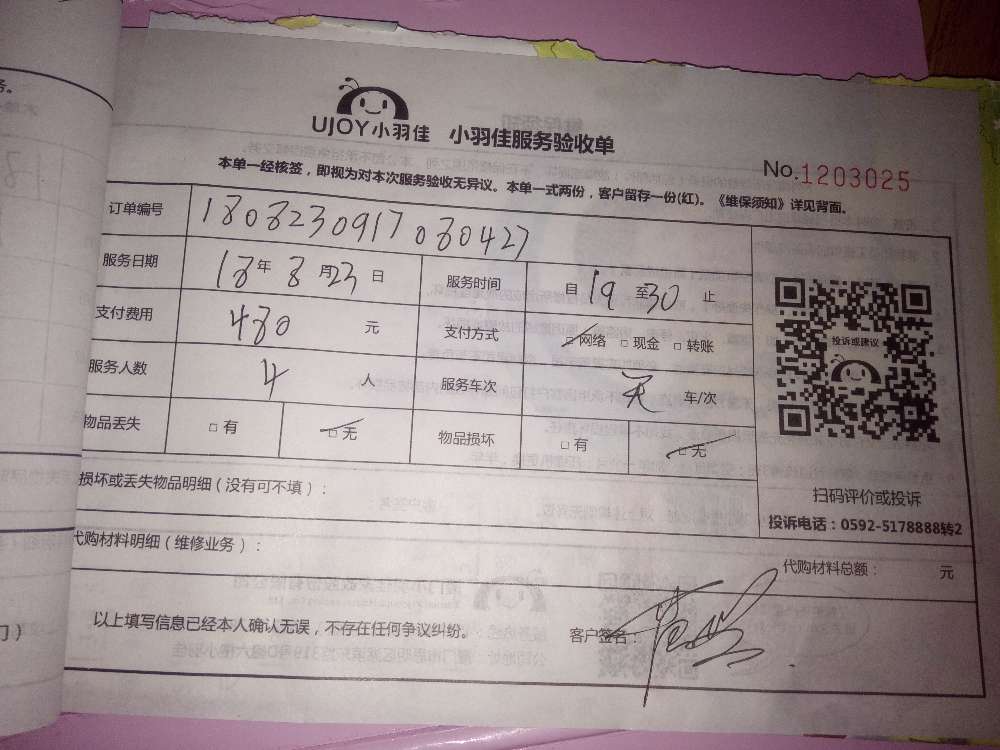 务。
UJOY小羽佳 小羽佳服务验收单
No.1203025
本单一经核签，即视为对本次服务验收无异议。本单一式两份，客户留存一份(红)。《维保须知》详见背面。
订单编号 1808230917080427
服务日期 18年8月23日 服务时间 自19至30止
支付费用 480元 支付方式 □网络 □现金 □转账
投诉或建议
服务人数 4人 服务车次 无 车/次
物品丢失 □有 □无 物品损坏 □有 □无
损坏或丢失物品明细（没有可不填）：
扫码评价或投诉
投诉电话：0592-5178888转2
代购材料明细（维修业务）：
代购材料总额： 元
以上填写信息已经本人确认无误，不存在任何争议纠纷。 客户签名：
门）